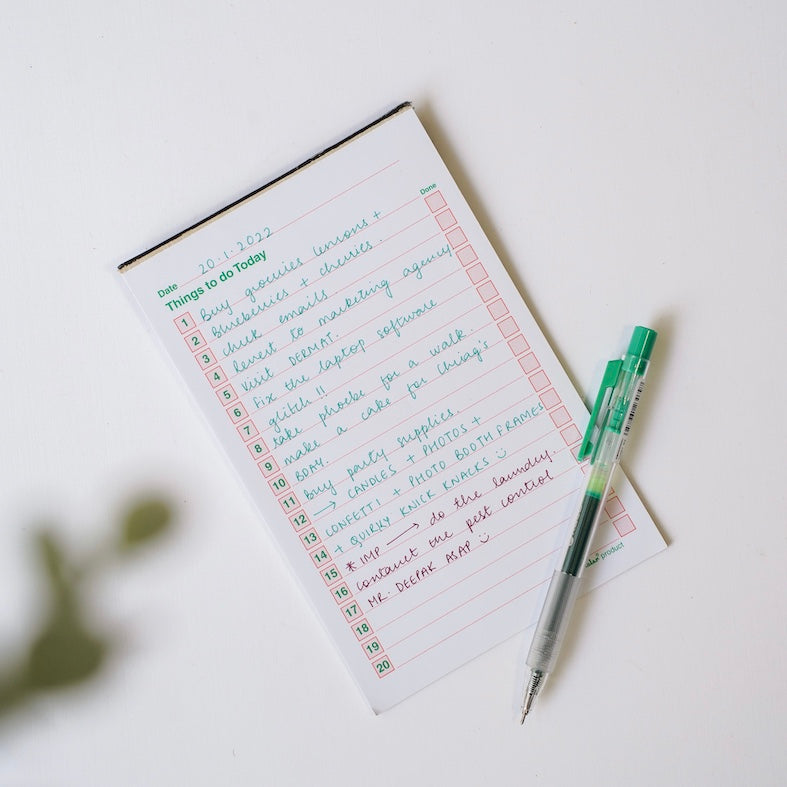 Date 20.1.2022
Things to do Today
Done
1 Buy groceries lemons +
2 Blueberries + cherries.
3 check emails
4 revert to marketing agency
5 visit DERMAT.
6 Fix the laptop software
7 glitch!!
8 take phoebe for a walk.
9 make a cake for Chiag's
10 BDAY.
11 buy party supplies.
12 → CANDLES + PHOTOS +
13 CONFETTI + PHOTO BOOTH FRAMES
14 + QUIRKY KNICK KNACKS :)
15 * IMP → do the laundry.
16 contanct the pest control
17 MR. DEEPAK ASAP :)
18
19
20
product